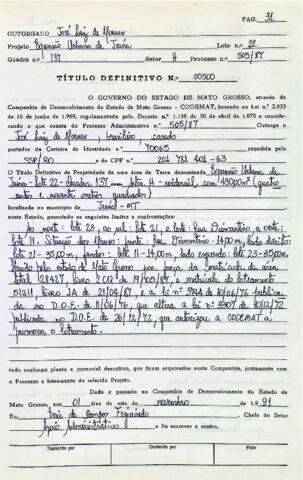 PAG. 31
OUTORGADO José Luiz de Moraes
Projeto Expansão Urbana de Juína Lote n.º 22
Quadra n.º 137 Setor H Processo n.º 505/87
TÍTULO DEFINITIVO N.º 00500
O GOVERNO DO ESTADO DE MATO GROSSO, através da
Companhia de Desenvolvimento do Estado de Mato Grosso - CODEMAT, baseado na Lei n.º 2.033
de 10 de junho de 1.969, regulamentada pelo Decreto n.º 1.138 de 30 de abril de 1.970 e considerando
o que consta do Processo Administrativo n.º 505/87 Outorga a
José Luiz de Moraes, brasileiro, casado
portador da Carteira de Identidade n.º 70065 expedida pela
SSP/RO e do CPF n.º 201 781 401-63
O Título Definitivo de Propriedade de uma área de Terra denominada Expansão Urbana de
Juína - lote 22 - Quadra 137 - Setor H - residencial, com 490,00m² (quatro
centos e noventa metros quadrados)
localizada no município de Juína - MT
neste Estado, possuindo os seguintes limites e confrontações:
Ao norte: lote 23, ao sul: lote 21, a leste: Rua Diamantino, a oeste:
lote 11. frente: Rua Diamantino - 14,00m, lado direito:
lote 21 - 35,00m, fundos: lote 11 - 14,00m, lado esquerdo: lote 23 - 35,00m.
pelo estado de Mato Grosso por força da matrícula da área
total livro 2 e matrícula do loteamento
51211, livro de 21/04/87, e a lei nº 3744 de 10/06/76 publica
da no D.O.E. de que altera a lei nº 3307 de 10/12/72
publicada no D.O.E. de 26/12/72, que autoriza a CODEMAT a
promover o loteamento.
tudo conforme planta e memorial descritivo, que ficam arquivados nesta Companhia, juntamente com
o Processo e loteamento do referido Projeto.
Dado e passado na Companhia de Desenvolvimento do Estado de
Mato Grosso, aos 01 dias do mês de novembro de 19 91
Eu, de Campos Figueiredo Chefe do Setor
Apoio Administrativo o fiz escrever e assino.
Transcrito por
Conferido por
Visto